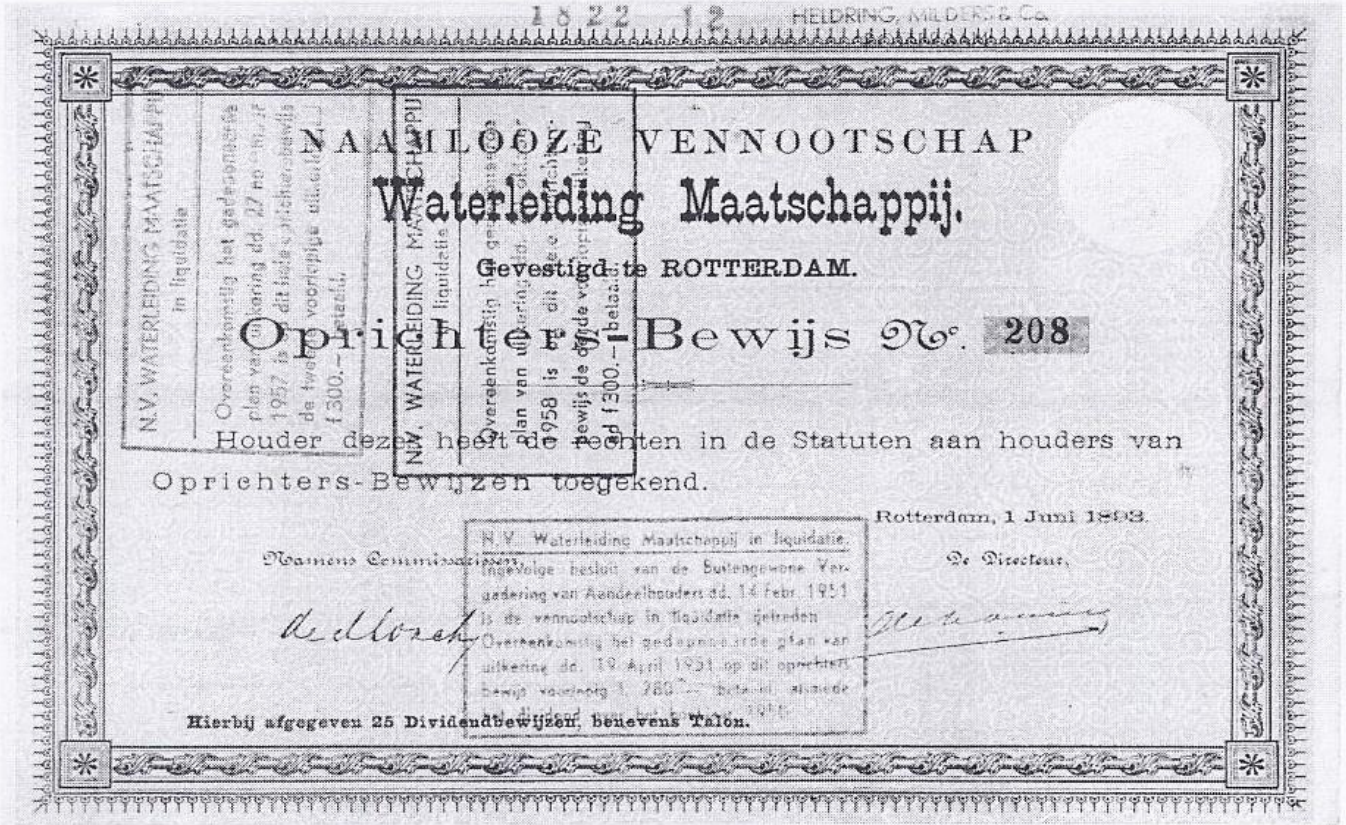 1822 12
HELDRING, MILDERS & Co.
NAAMLOOZE VENNOOTSCHAP
Waterleiding Maatschappij.
Gevestigd te ROTTERDAM.
Oprichters-Bewijs No. 208
Houder dezes heeft de rechten in de Statuten aan houders van
Oprichters-Bewijzen toegekend.
Rotterdam, 1 Juni 1893.
Namens Commissarissen,
De Directeur,
Hierbij afgegeven 25 Dividendbewijzen, benevens Talon.
N.V. WATERLEIDING MAATSCHAPPIJ
in liquidatie
Overeenkomstig het gedeponeerde
plan van uitkering dd. 27
1957 is op dit
de tweede voorlopige
f 300.— betaald.
N.V. WATERLEIDING MAATSCHAPPIJ
liquidatie
Overeenkomstig het
plan van uitkering dd.
1958 is op dit
bewijs de derde
ad f 300.— betaald.
N.V. Waterleiding Maatschappij in liquidatie.
Ingevolge besluit van de Buitengewone Ver-
gadering van Aandeelhouders dd. 14 febr. 1951
is de vennootschap in liquidatie getreden
Overeenkomstig het gedeponeerde plan van
uitkering dd. 19 April 1951 op dit oprichters
bewijs voorlopig f. 280.— betaald, alsmede
het dividend over het 1950.